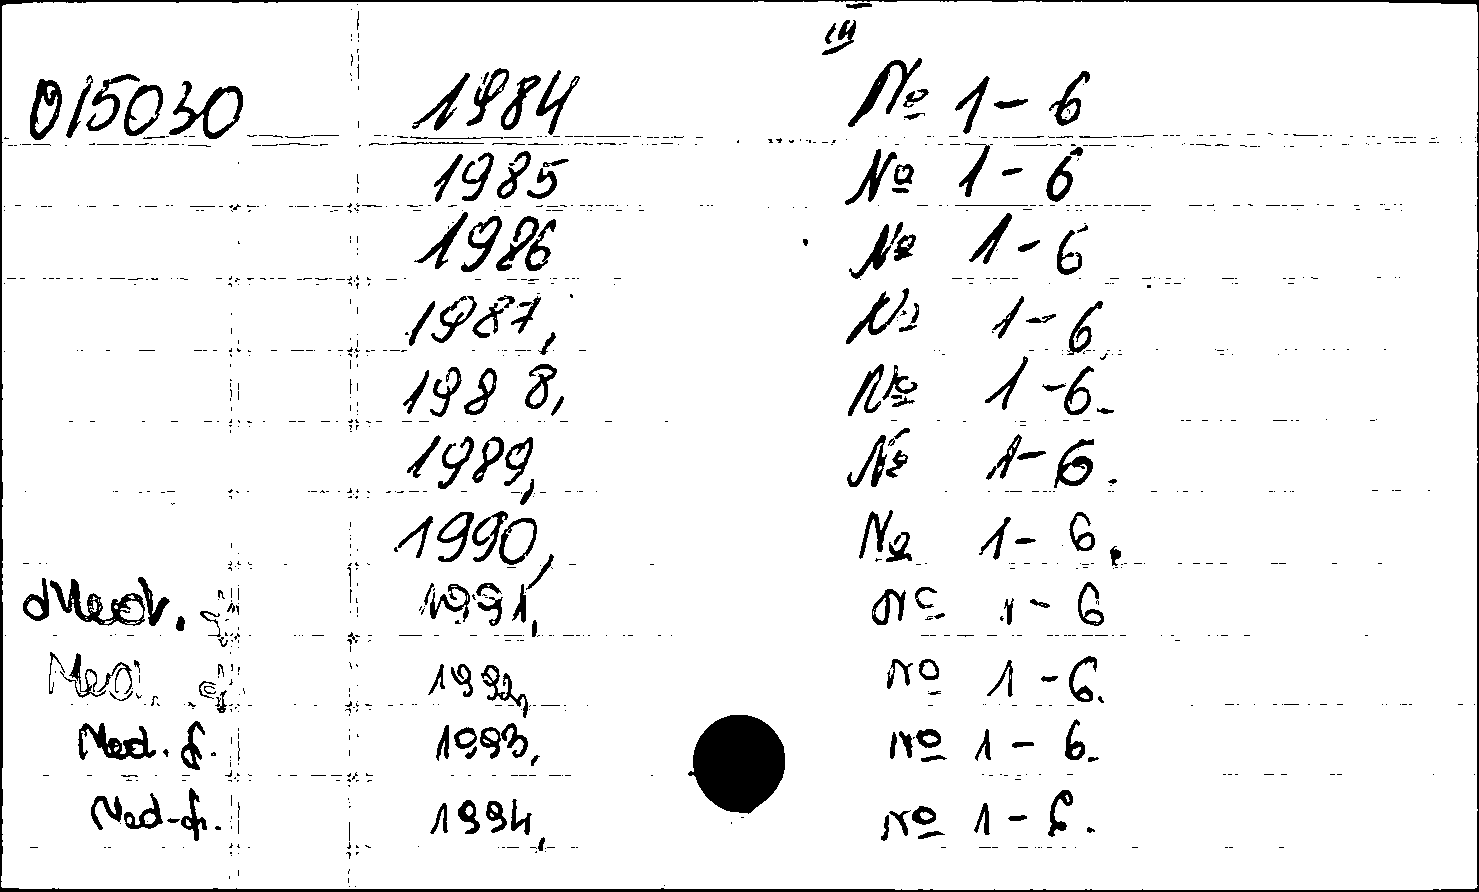 III
015030 1984 № 1-6
1985 № 1-6
1986 № 1-6
1987, № 1-6
1988, № 1-6.
1989, № 1-6.
1990, № 1-6.
1991, № 1-6
Med. 1992, № 1-6.
Med. f. 1993, № 1-6.
Med-f. 1994, № 1-6.